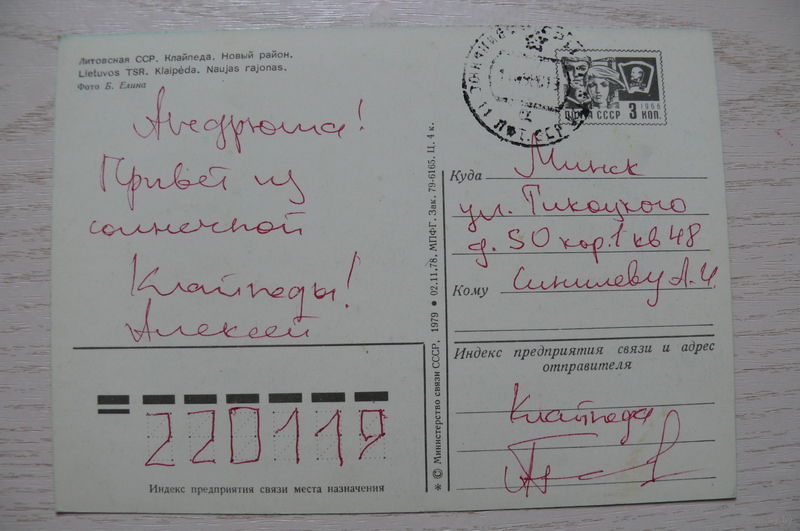 Литовская ССР. Клайпеда. Новый район.
Lietuvos TSR. Klaipėda. Naujas rajonas.
Фото Б. Елина
Андрюша!
Привет из
солнечной
Клайпеды!
Алексей
220119
Индекс предприятия связи места назначения
* © Министерство связи СССР, 1979 • 02.11.78. МПФГ. Зак. 79-6165. Ц. 4 к.
1966
ПОЧТА СССР 3 КОП.
Куда Минск
ул. Тикоцкого
д. 50 кор. 1 кв 48
Кому Синилеву А. И.
Индекс предприятия связи и адрес
отправителя
Клайпеда